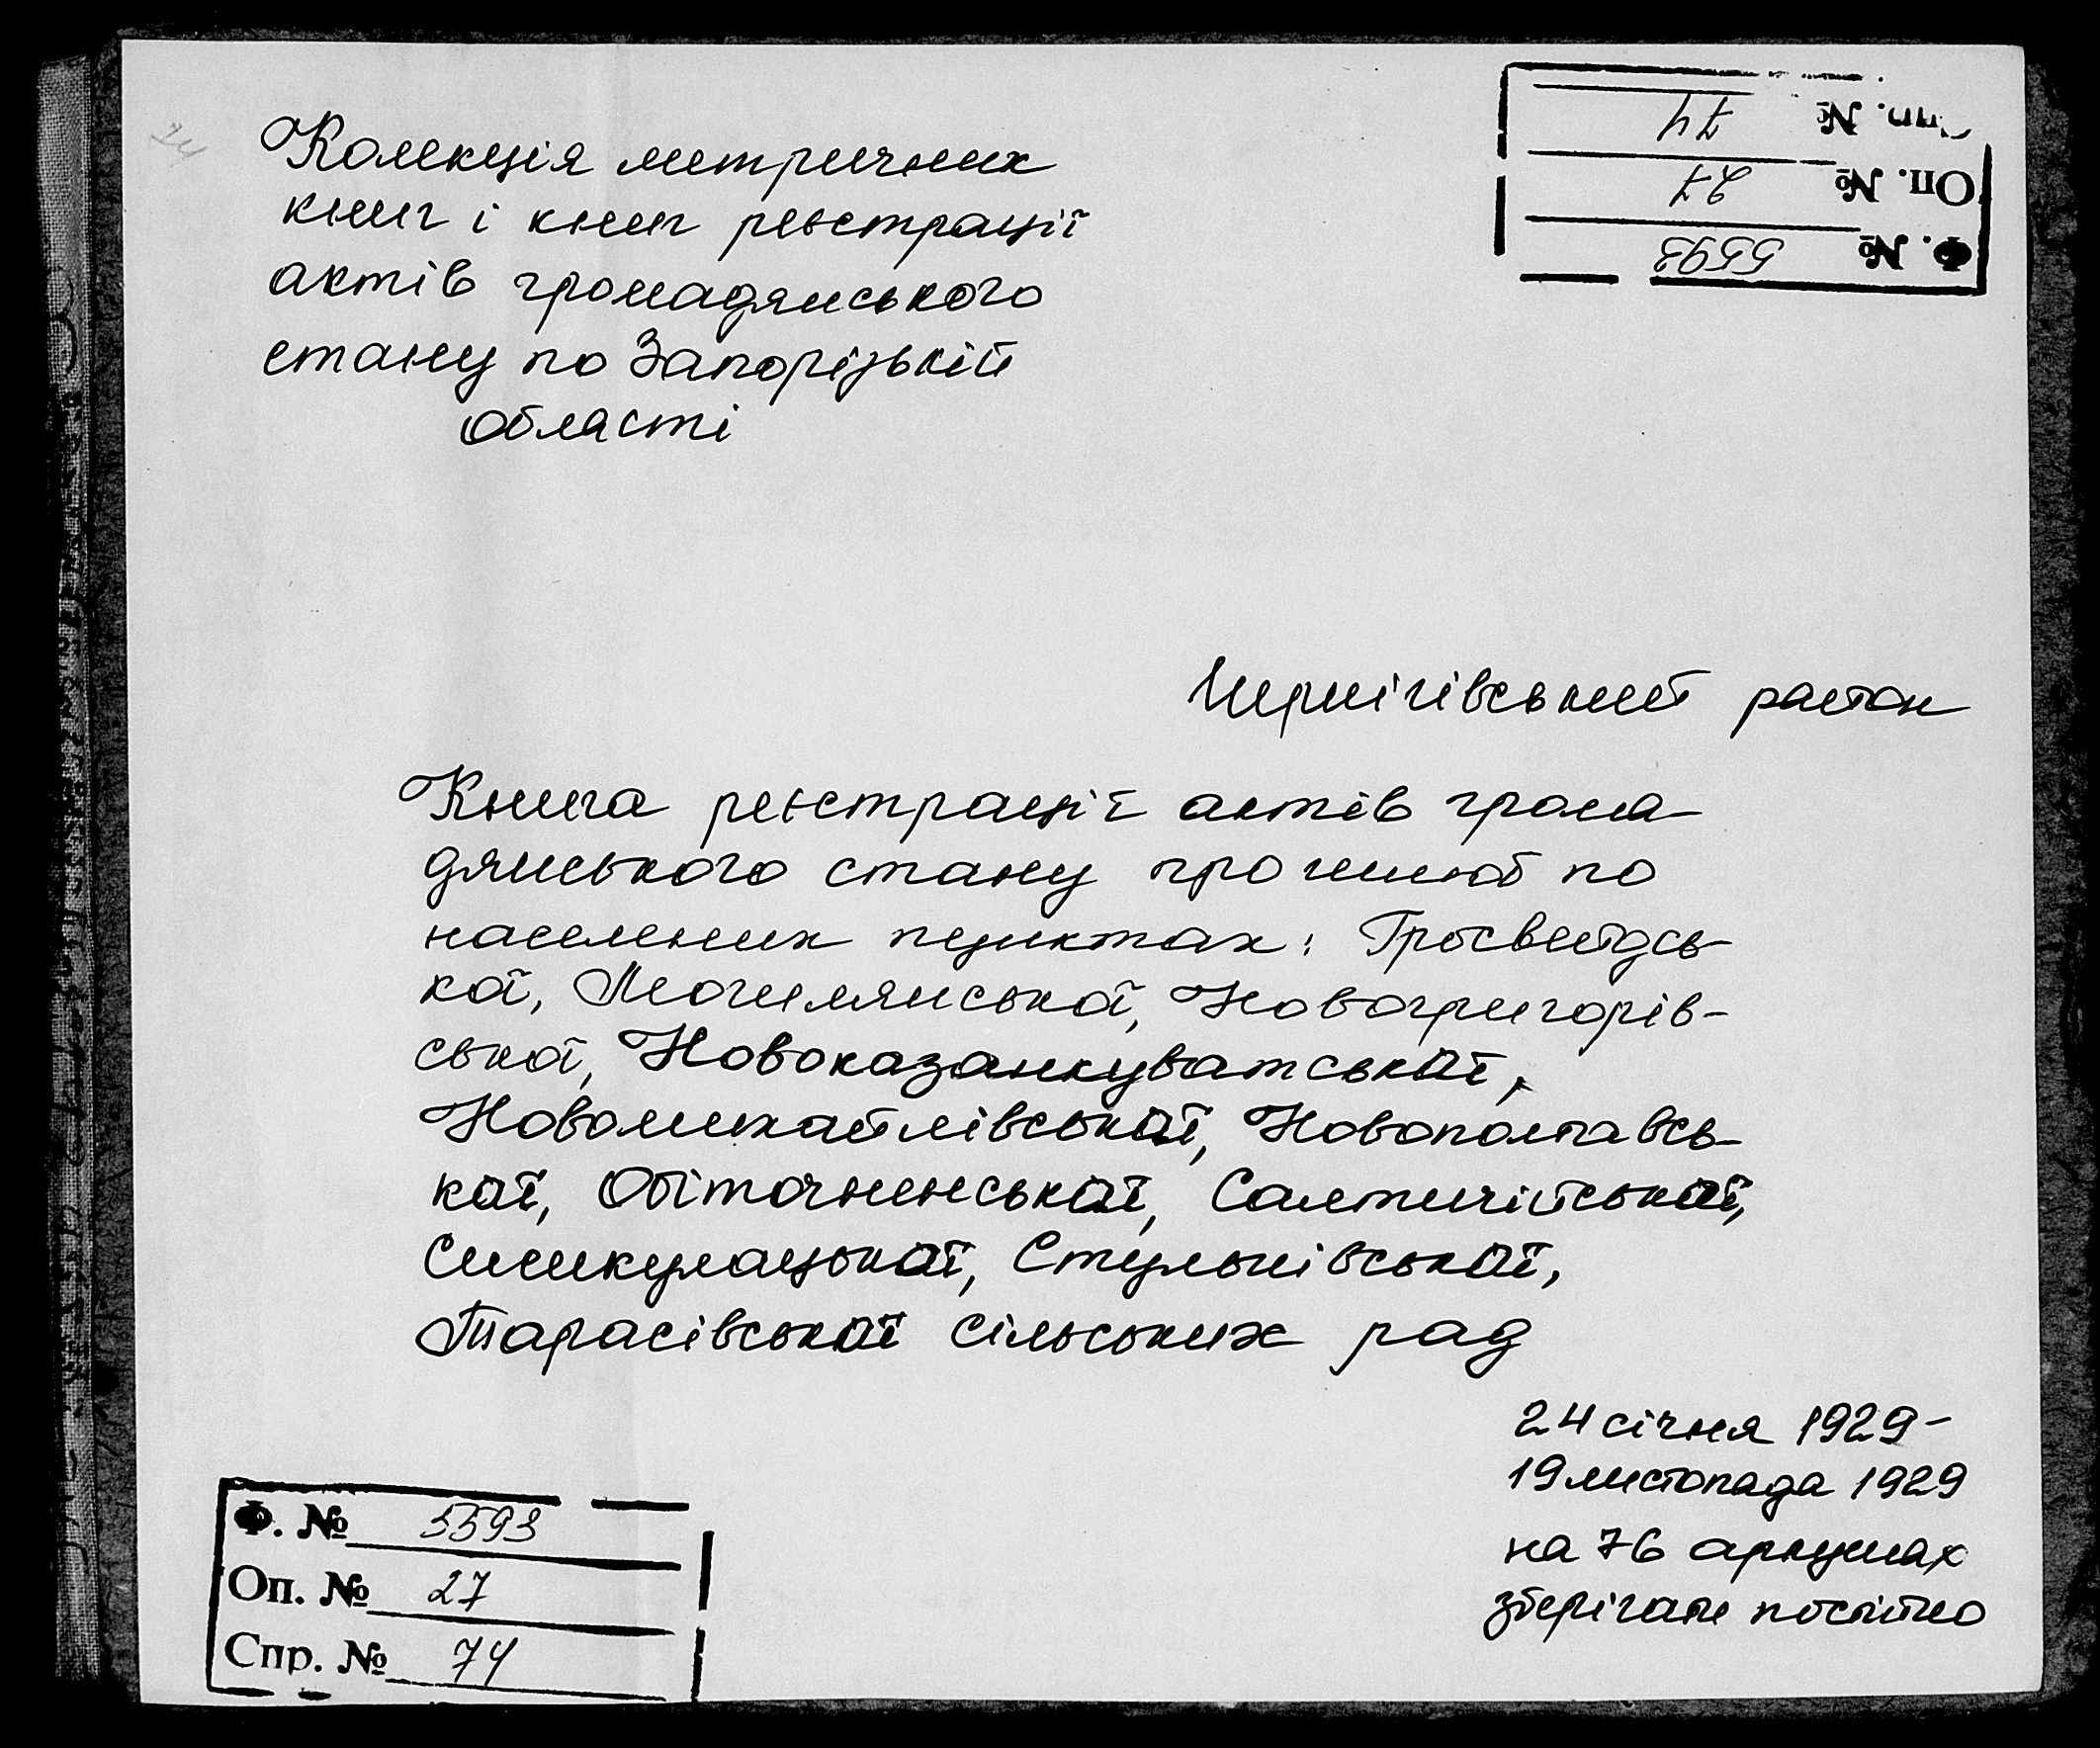 Колекція метричних
книг і книг реєстрації
актів громадянського
стану по Запорізькій
області
Спр. № 74
Оп. № 27
Ф. № 5593
Чернігівський район
Книга реєстрації актів грома-
дянського стану про шлюб по
населених пунктах: Гросвейдсь-
кої, Могилянської, Новогригорів-
ської, Новоказанкуватської,
Новомихайлівської, Новополтавсь-
кої, Обіточненської, Салтичійської,
Синикулацької, Стульнівської,
Тарасівської сільських рад
24 січня 1929-
19 листопада 1929
на 76 аркушах
зберігати постійно
Ф. № 5593
Оп. № 27
Спр. № 74